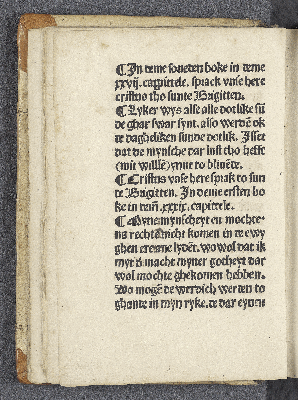 ¶ In deme souenten boke in deme
xxvij. cappittele. sprack vnse here
cristus tho sunte Birgitten.
¶ Lyker wys alse alle dotlike sū
de ghar swar synt. also werdē ok
de dagheliken sunde dotlik. Isset
dat de mynsche dar lust tho hefft
(mit willē) ynne to bliuēde.
¶ Cristus vnse here sprak to sun
te Birgitten. In deme ersten bo
ke in dem xxxix. capittele.
¶ Nyne mynscheyt en mochte
na recht nicht komen in de ewy
ghen ere ane lydēt. wo wol dat ik
myt d' macht myner gotheyt dar
wol mochte ghekomen hebben.
Wo mogē de werdich werden to
ghande in myn ryke. de dar eynen